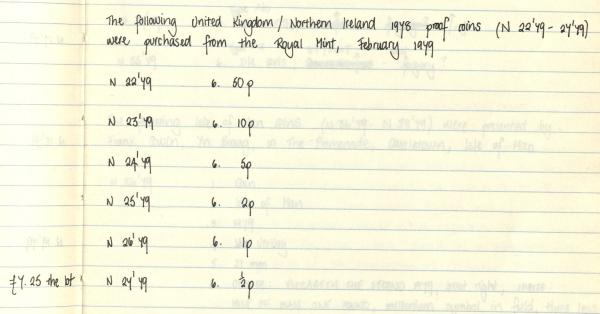 The following United Kingdom / Northern Ireland 1978 proof coins (N 22'79 - 27'79)
were purchased from the Royal Mint, February 1979
N 22'79 6. 50p
N 23'79 6. 10p
N 24'79 6. 5p
N 25'79 6. 2p
N 26'79 6. 1p
£7.25 the lot N 27'79 6. ½p